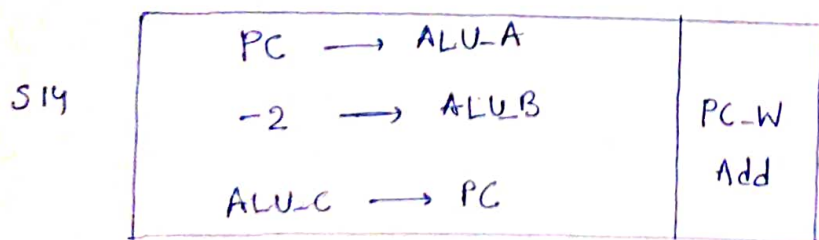 S14
PC → ALU_A
-2 → ALU_B
ALU_C → PC
PC_W
Add